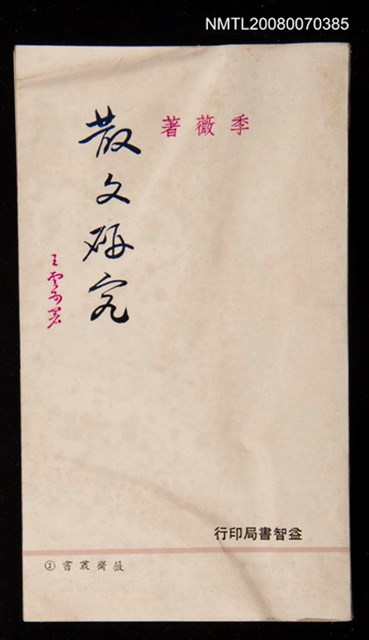 NMTL20080070385
季薇著
散文研究
王雲五署
益智書局印行
薇齋叢書